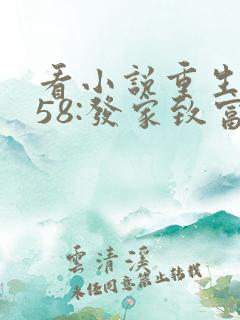 看小說重生
58:發家致富
雲清溪
未经同意禁止转载